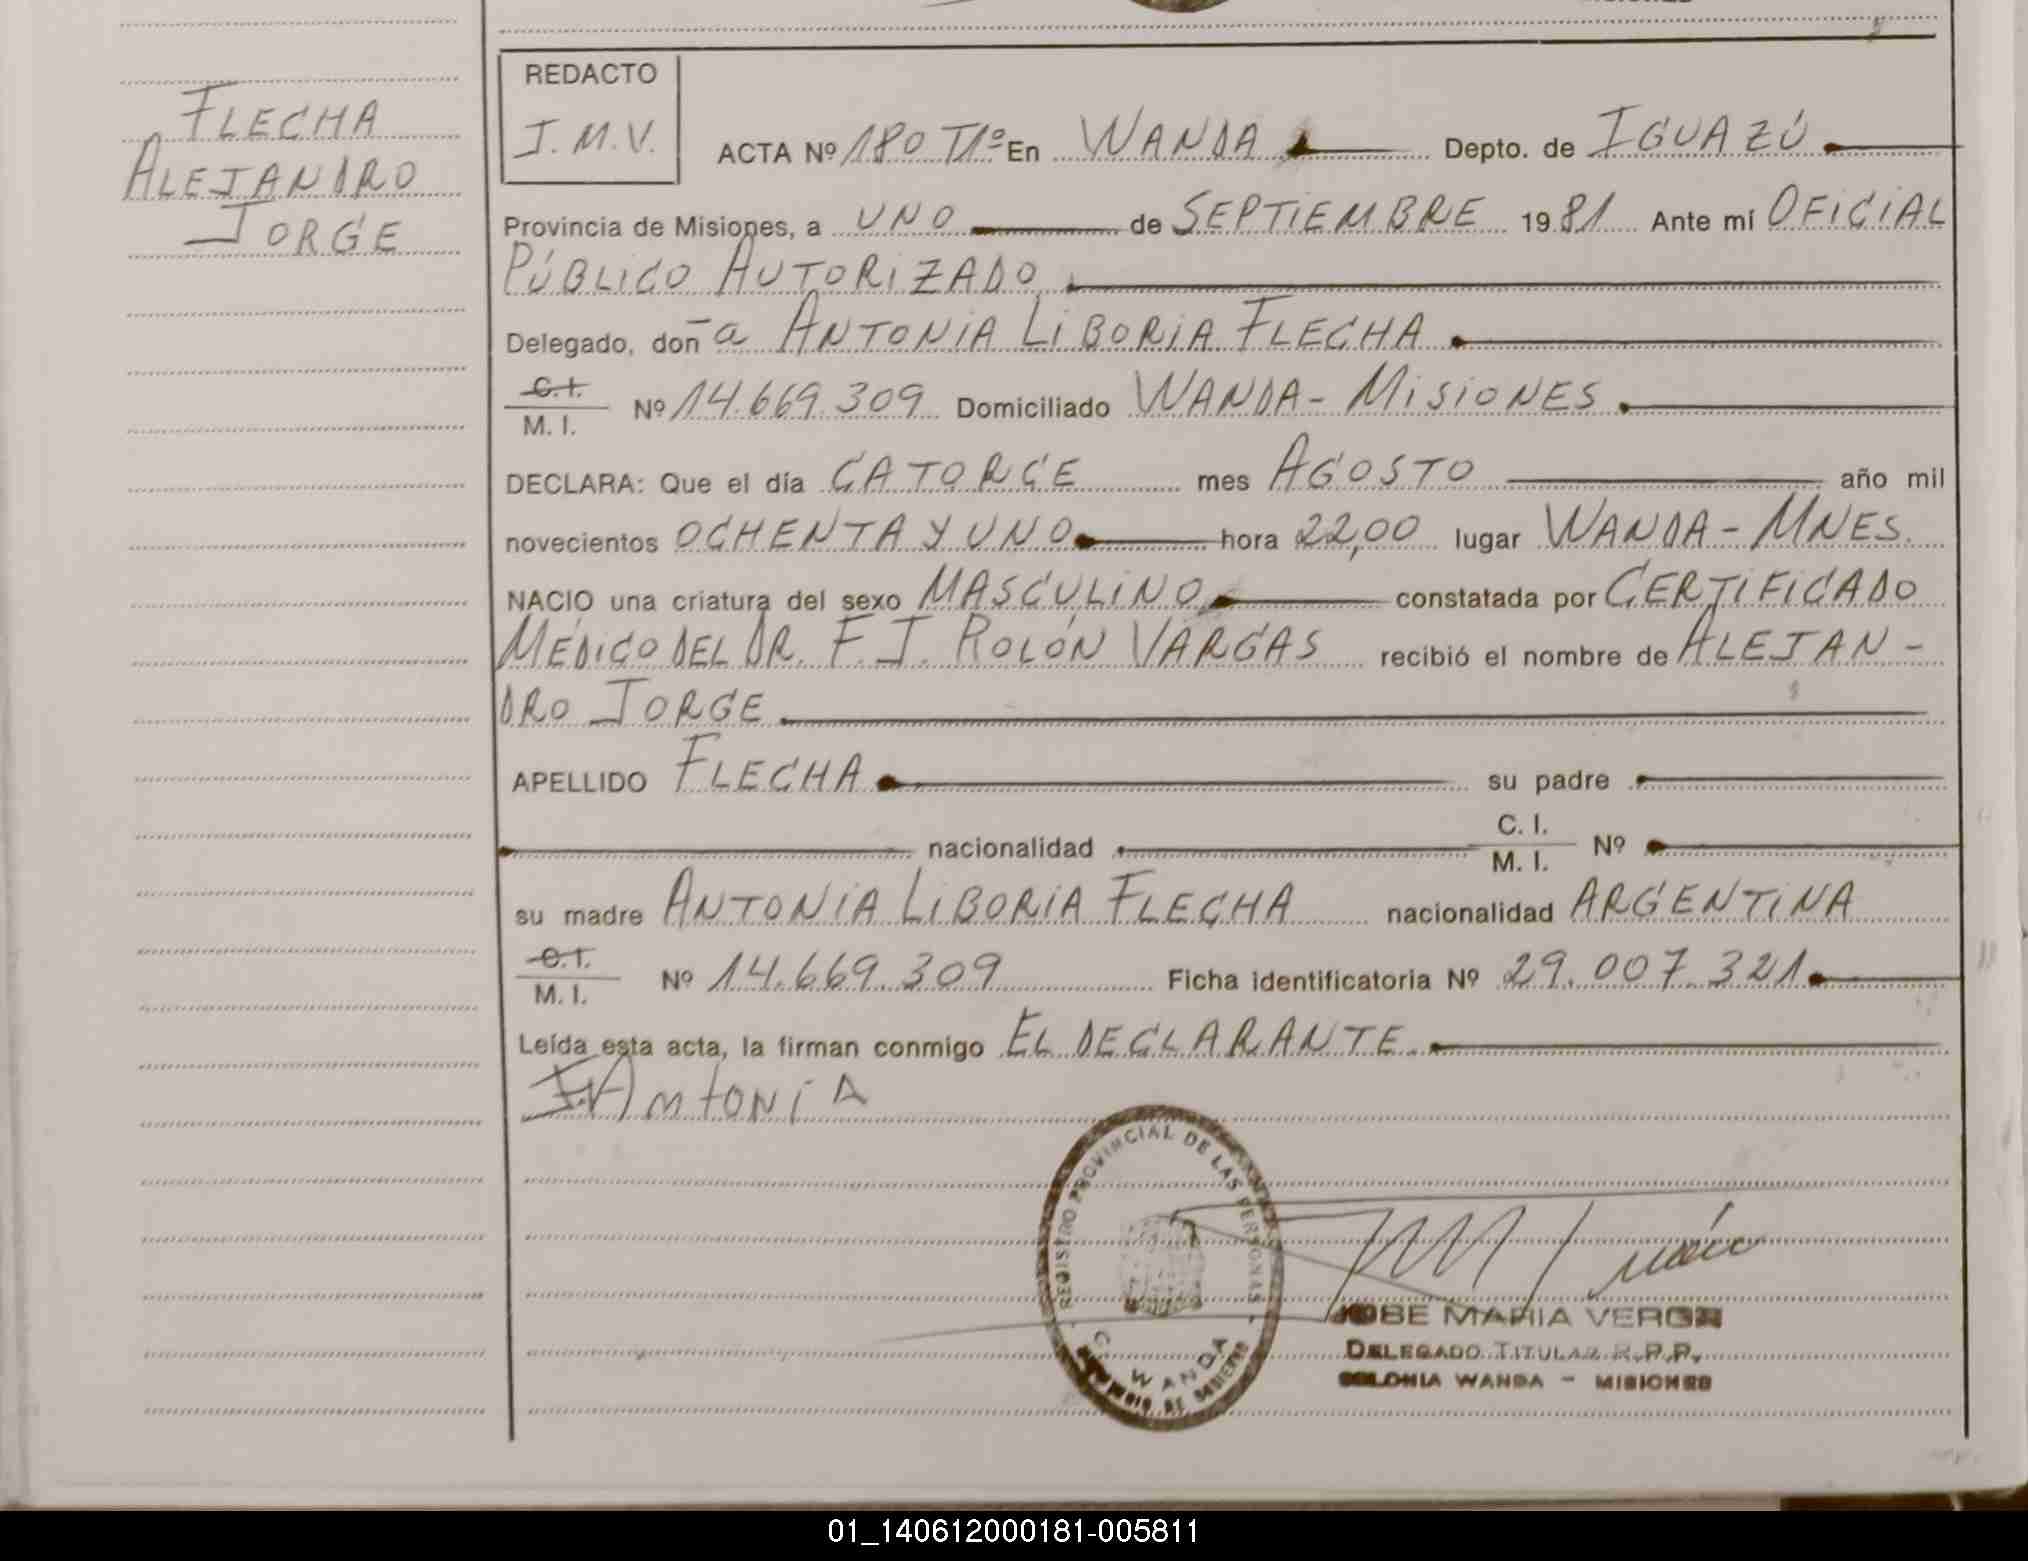 FLECHA
ALEJANDRO
JORGE
REDACTO
J.M.V.
ACTA Nº 180 T1º En WANDA Depto. de IGUAZÚ
Provincia de Misiones, a UNO de SEPTIEMBRE 1981 Ante mí OFICIAL
PÚBLICO AUTORIZADO
Delegado, don a ANTONIA LIBORIA FLECHA
C.I.
M.I. Nº 14.669.309 Domiciliado WANDA - MISIONES
DECLARA: Que el día CATORCE mes AGOSTO año mil
novecientos OCHENTA Y UNO hora 22,00 lugar WANDA - MNES.
NACIO una criatura del sexo MASCULINO constatada por CERTIFICADO
MÉDICO DEL DR. F.J. ROLÓN VARGAS recibió el nombre de ALEJAN-
DRO JORGE
APELLIDO FLECHA su padre
nacionalidad C.I. M.I. Nº
su madre ANTONIA LIBORIA FLECHA nacionalidad ARGENTINA
C.I.
M.I. Nº 14.669.309 Ficha identificatoria Nº 29.007.321
Leída esta acta, la firman conmigo EL DECLARANTE
F. ANTONIA
REGISTRO PROVINCIAL DE LAS PERSONAS
WANDA
DE GOBIERNO
JOSE MARIA
DELEGADO TITULAR R.P.P.
COLONIA WANDA - MISIONES
01_140612000181-005811